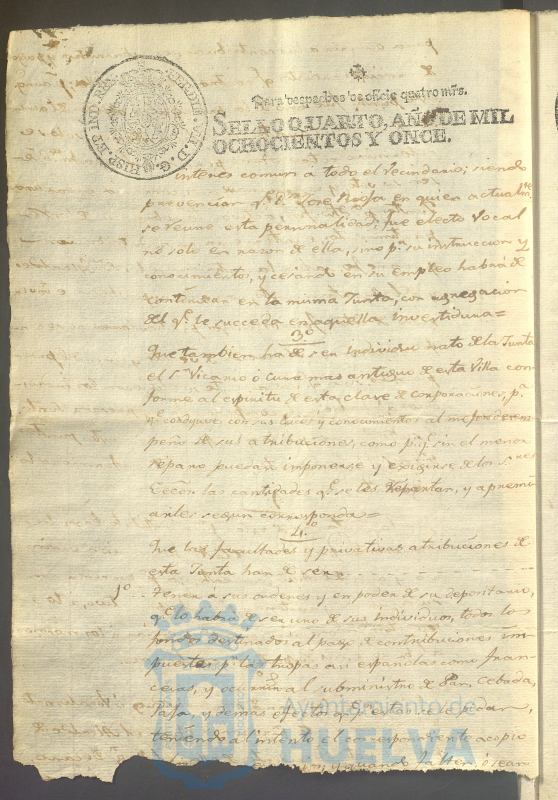 HISP. ET IND. REX. FERDIN. VII. D. G.
Para despachos de oficio quatro mrs.
SELLO QUARTO, AÑO DE MIL
OCHOCIENTOS Y ONCE.
interes comun a todo el Vecindario; siendo
prevencion qe. Dn. Jose en quien actualmte.
se reune esta personalidad, fue electo Vocal
no solo en razon de ella, sino pr. su instruccion y
conocimiento, y cesando en su empleo habrá de
continuar en la misma Junta, con agregacion
del qe. le succeda en aquella investidura=
3.º
Que tambien ha de ser Individuo nato de la Junta
el Sr. Vicario ó cura mas antiguo de esta Villa con
forme al espiritu de esta clase de corporaciones, pa.
qe. coadyuve con sus luces y conocimientos al mejor desem
peño de sus atribuciones, como pr. qe. sin el menor
reparo puedan imponerse y exigirse de los Sres.
las cantidades qe. se les repartan, y apremi
arles segun corresponda=
4.º
Que las facultades y privativas atribuciones de
esta Junta han de ser
1º Tener a sus ordenes y en poder de su depositario,
qe. lo habrá de ser uno de sus individuos, todos los
fondos destinados al pago de contribuciones im
puestas pr. las tropas asi españolas como fran
cesas, y ocurrir al subministro de Pan, Cebada,
Paja, y demas efectos qe. estas
teniendo al intento el correspondiente acopio
y quando falten, ó sean
Ayuntamiento de
HUELVA